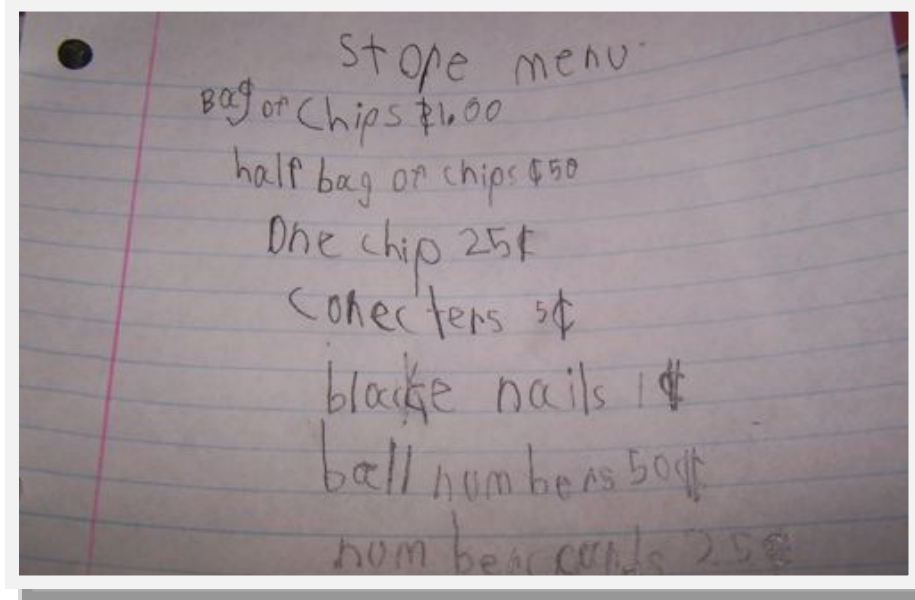 Store menu
Bag of Chips $1.00
half bag of chips $50
One chip 25¢
Conecters 5¢
blacke nails 1¢
ball numbers 50¢
number cards 25¢